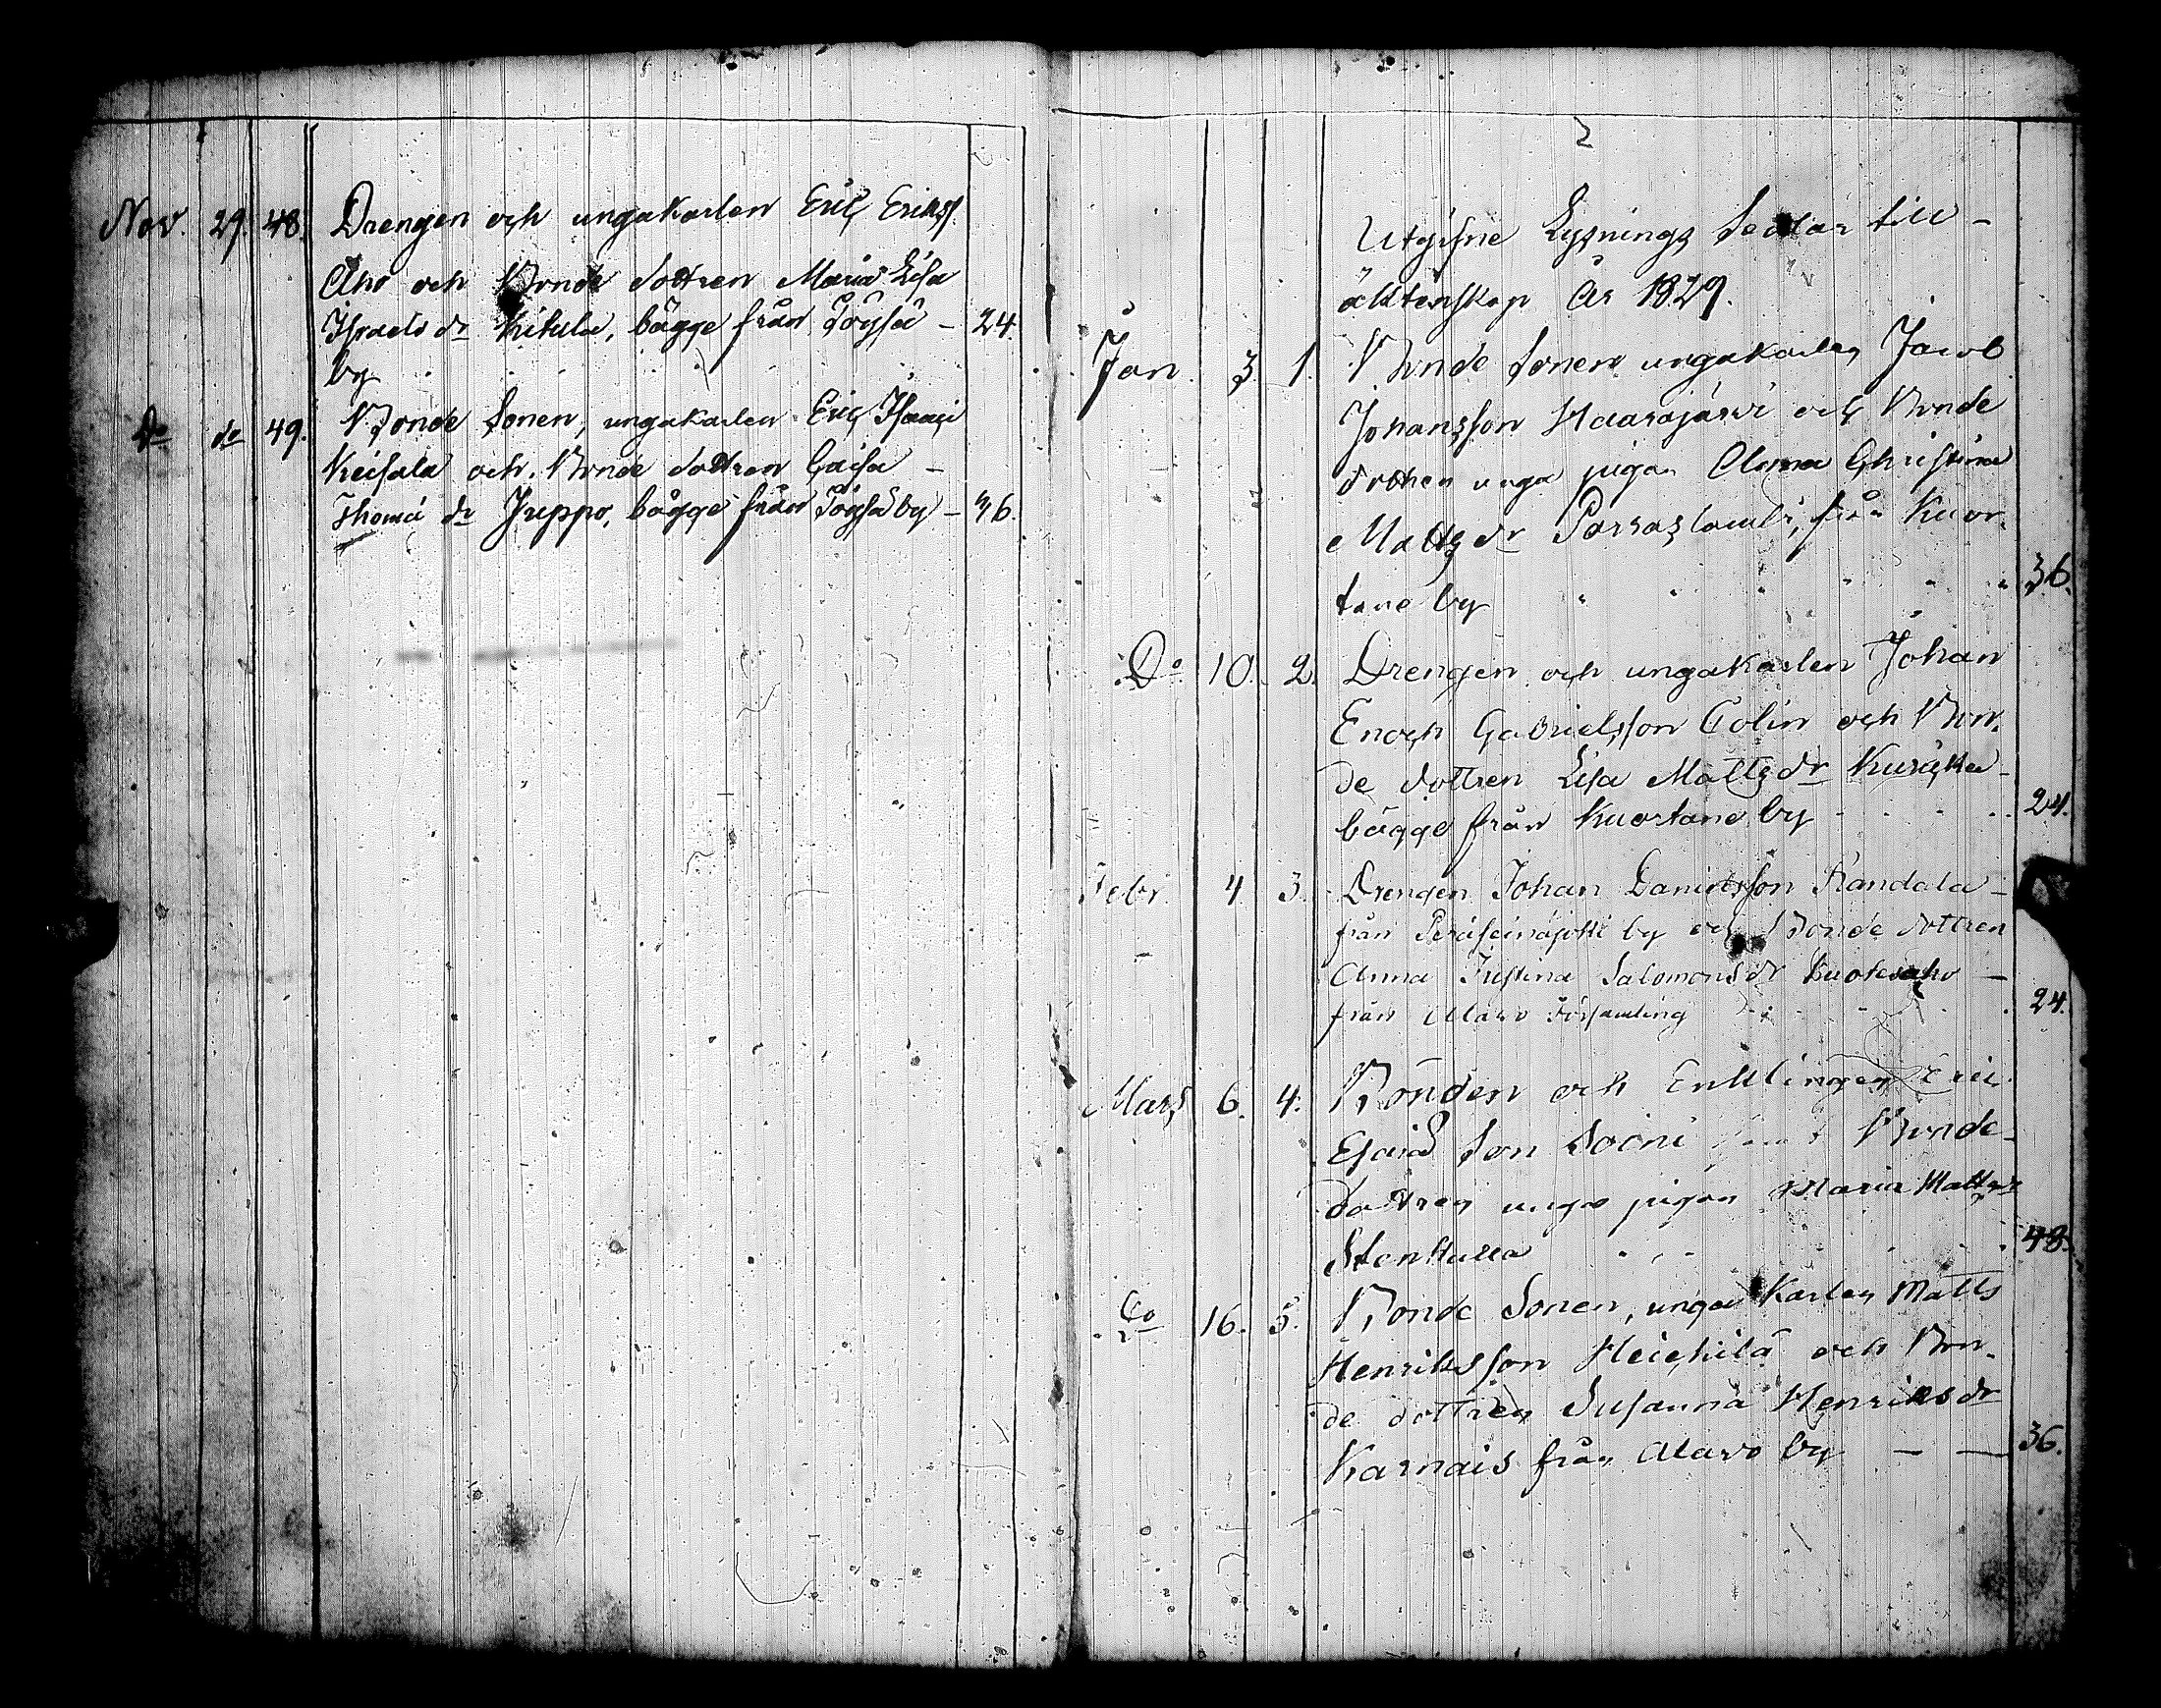 Nov. 29. 48. Drengen och ungakarlen Eric Erikss.
Aho och Bonde dottren Maria Lisa
Israels dr Kitula, bägge från Töysä – 24.
by
Do do 49. Bonde Sonen, ungakarlen Eric Isaaci
Keisala och Bonde dottren Caisa –
Thomæ dr Juppo, bägge från Töysä by – 36.
2
Utgifne Lysnings Sedlar till –
äktenskap År 1829.
Jan. 3. 1. Bonde Sonen ungakarlen Jacob
Johansson Haarajärvi och Bonde
dottren unga pigan Anna Christina
Matts dr från Kuor-
tane by 36.
Do 10. 2. Drengen och ungakarlen Johan
Enoch Gabrielsson Colin och Bon-
de dottren Lisa Matts dr
bägge från Kuortane by 24.
Febr. 4 3. Drengen Johan Danielsson Randala –
från Peräseinäjoki by och Bonde dottren
Anna Justina Salomons dr –
från Alavo Församling 24.
Mars 6. 4. Bonden och Enklingen Eric
Esaias Son Soini Bonde
dottren unga pigan Maria Matts dr
Stenkulla 48.
Do 16. 5. Bonde Sonen, unga Karlen Matts
Henriksson Heickilä och Bon-
de dottren Susanna Henriks dr
Karnais från Alavo by – – 36.